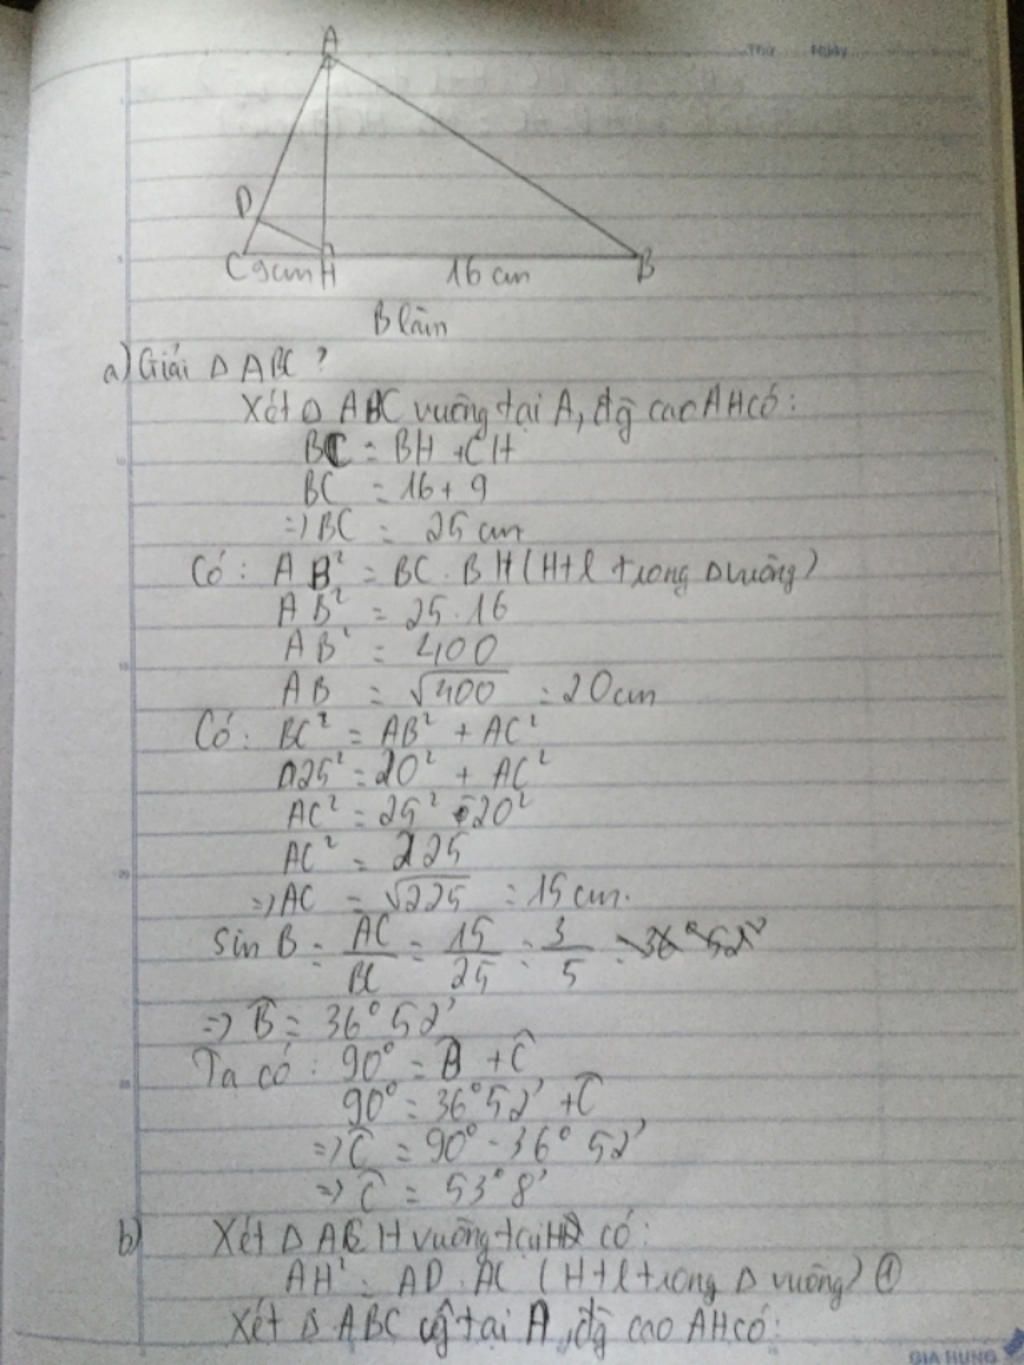 Thứ Ngày
A
D
C 9cm H 16 cm B
Blàm
a) Giải Δ ABC ?
Xét Δ ABC vuông tại A, đg cao AH có:
BC = BH + CH
BC = 16 + 9
=> BC = 25 cm
Có: AB² = BC . BH (Htl trong Δ vuông)
AB² = 25.16
AB² = 400
AB = √400 = 20cm
Có: BC² = AB² + AC²
25² = 20² + AC²
AC² = 25² - 20²
AC² = 225
=> AC = √225 = 15 cm.
Sin B = AC/BC = 15/25 = 3/5
=> B̂ = 36° 52'
Ta có: 90° = B̂ + Ĉ
90° = 36° 52' + Ĉ
=> Ĉ = 90° - 36° 52'
=> Ĉ = 53° 8'
b) Xét Δ ACH vuông tại H có:
AH² = AD . AC (Htl trong Δ vuông) ①
Xét Δ ABC vg tại A, đg cao AH có:
GIA HƯNG